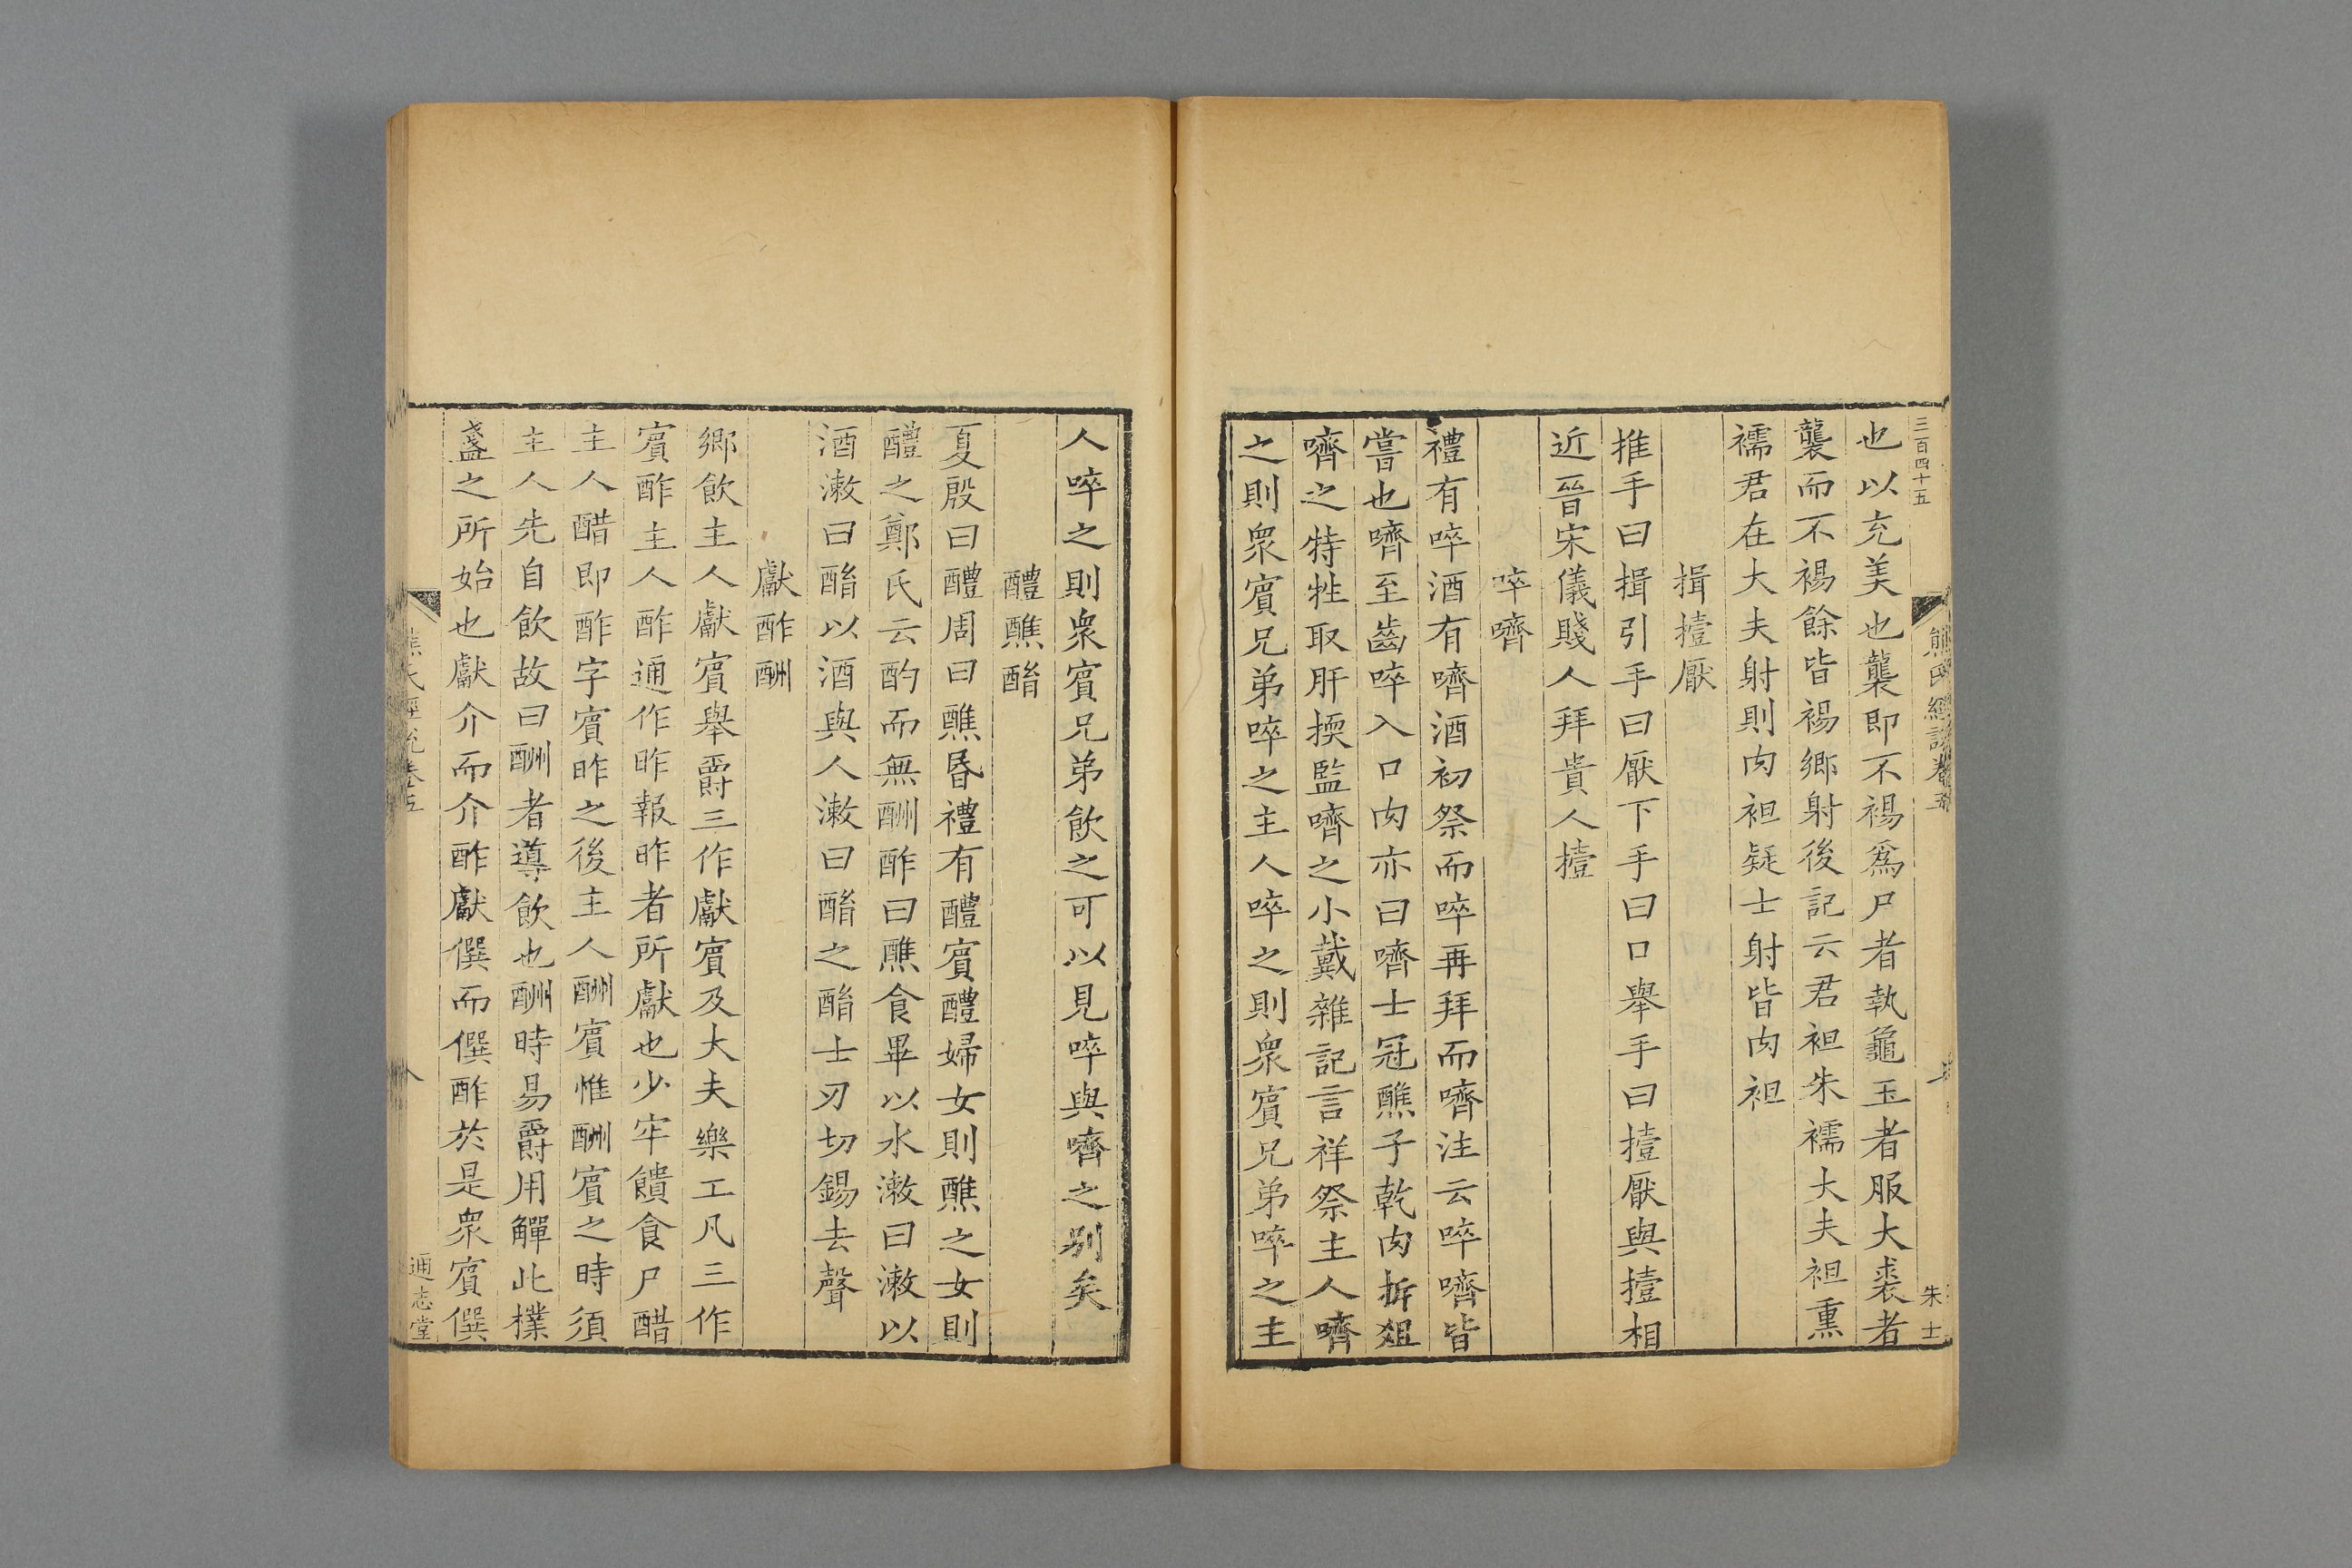 三百四十五
也以充美也襲即不裼爲尸者執龜玉者服大裘者
襲而不裼餘皆裼鄉射後記云君袒朱襦大夫袒熏
襦君在大夫射則肉袒疑士射皆肉袒
揖撎厭
推手曰揖引手曰厭下手曰口舉手曰撎厭與撎相
近晉宋儀賤人拜貴人撎
啐嚌
禮有啐酒有嚌酒初祭而啐再拜而嚌注云啐嚌皆
嘗也嚌至齒啐入口肉亦曰嚌士冠醮子乾肉折俎
嚌之特牲取肝擩監嚌之小戴雜記言祥祭主人嚌
之則衆賓兄弟啐之主人啐之則衆賓兄弟啐之主
熊氏經說卷五
朱士
人啐之則衆賓兄弟飲之可以見啐與嚌之别矣
醴醮酳
夏殷曰醴周曰醮昬禮有醴賓醴婦女則醮之女則
醴之鄭氏云酌而無酬酢曰醮食畢以水漱曰漱以
酒漱曰酳以酒與人漱曰酳之酳士刃切錫去聲
獻酢酬
鄉飲主人獻賓舉爵三作獻賓及大夫樂工凡三作
賓酢主人酢通作昨報昨者所獻也少牢饋食尸醋
主人醋即酢字賓昨之後主人酬賓惟酬賓之時須
主人先自飲故曰酬者導飲也酬時易爵用觶此檏
盞之所始也獻介而介酢獻僎而僎酢於是衆賓僎
熊氏經說卷五
八
通志堂